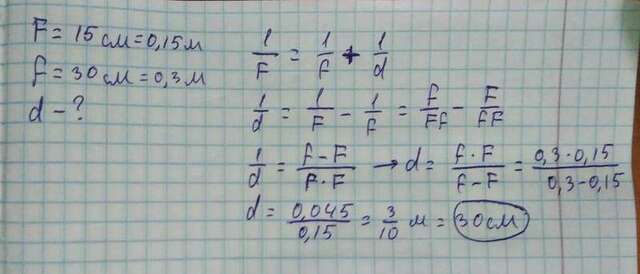 F = 15 см = 0,15 м
f = 30 см = 0,3 м
d - ?
1/F = 1/f + 1/d
1/d = 1/F - 1/f = f/Ff - F/fF
1/d = f-F/F·F → d = f·F/f-F = 0,3·0,15/0,3-0,15
d = 0,045/0,15 = 3/10 м = 30 см